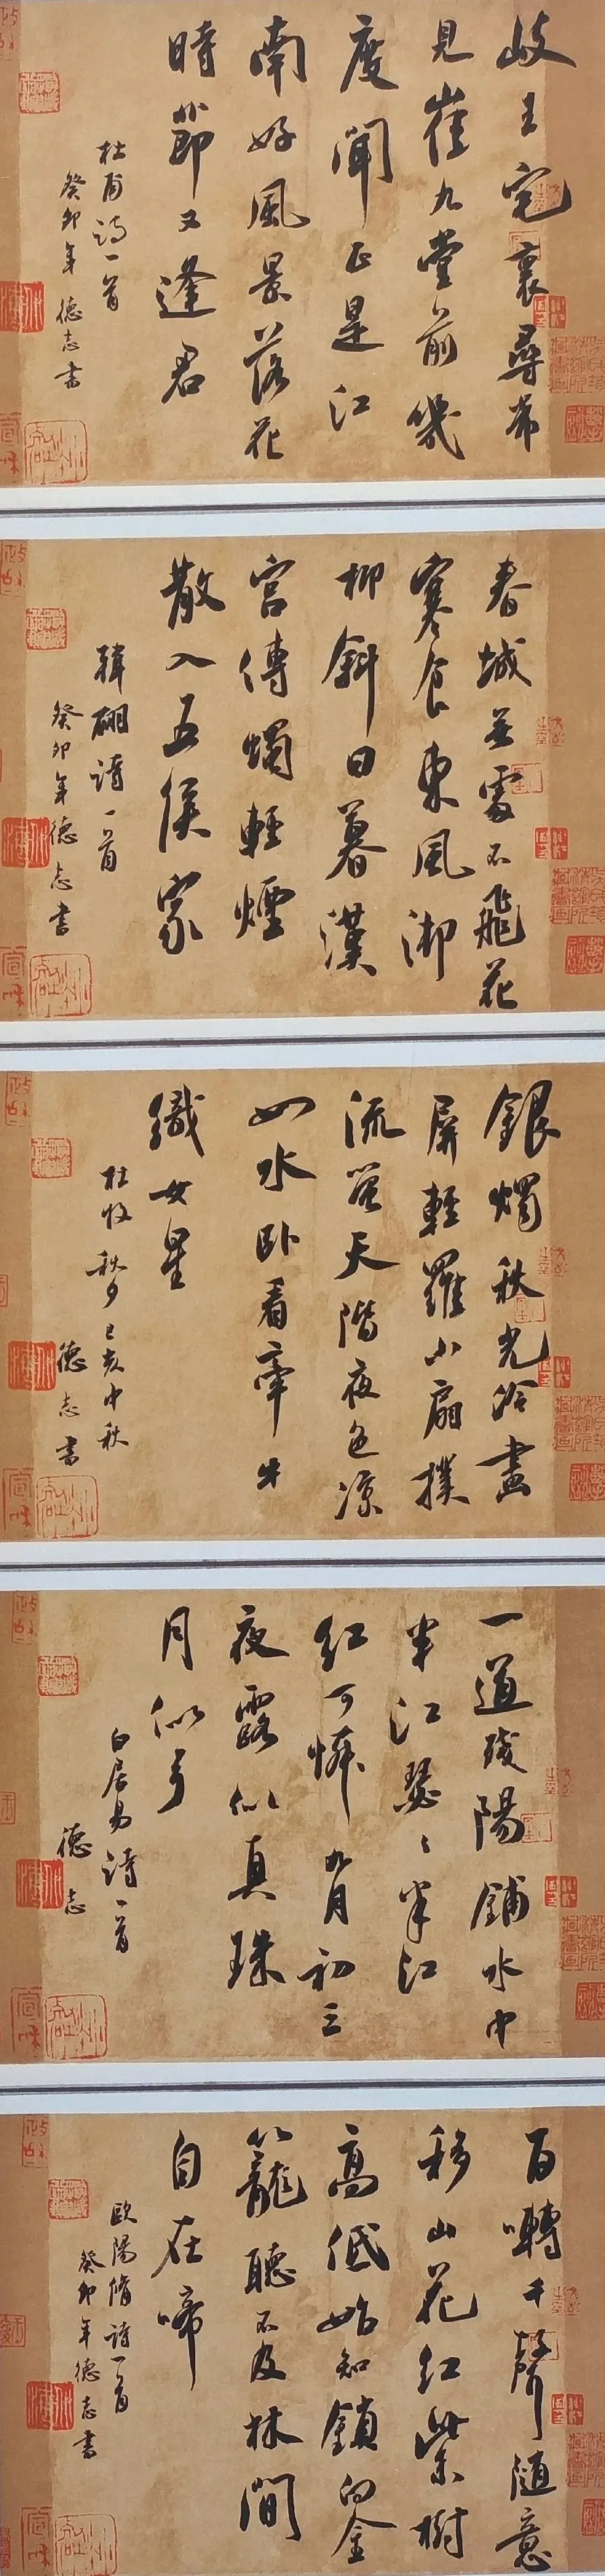 岐王宅裏尋常
見崔九堂前幾
度聞正是江
南好風景落花
時節又逢君
杜甫詩一首
癸卯年德志書
春城無處不飛花
寒食東風御
柳斜日暮漢
宮傳燭輕煙
散入五侯家
韓翃詩一首
癸卯年德志書
銀燭秋光冷畫
屏輕羅小扇撲
流螢天階夜色涼
如水臥看牽牛
織女星
杜牧秋夕己亥中秋
德志書
一道殘陽鋪水中
半江瑟〻半江
紅可憐九月初三
夜露似真珠
月似弓
白居易詩一首
德志
百囀千聲隨意
移山花紅紫樹
高低始知鎖向金
籠聽不及林間
自在啼
歐陽脩詩一首
癸卯年德志書